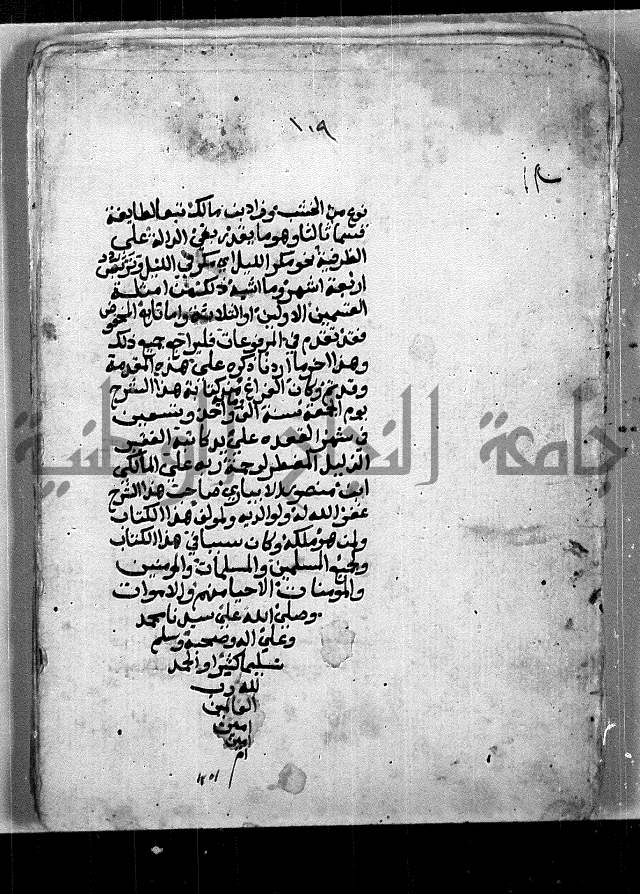 ١٠٩
نوع من الخشب وزاد بن مالك تبعا لطايفة
قسما ثالثا وهو ما يقدر بفي الدالة على
الظرفية نحو مكر الليل اي مكر في الليل وتربص
اربعة اشهر وما اشبه ذلك من امثلة
القسمين الاولين او الثلاثة واما تابع المخفوض
فقد تقدم في المرفوعات فليراجع جميع ذلك
وهذا اخر ما اردنا ذكره على هذه المقدمة
وكان الفراغ من كتابة هذا الشرح
يوم الجمعة سنة الف وتسعين
في شهر القعده على يد كاتبه الفقير
الذليل المضطر لرحمة ربه علي المالكي
ابن منصور الابياري صاحب هذا الشرح
غفر الله له ولوالديه ولمولف هذا الكتاب
ولمن هو ملكه وكان سببا في هذا الكتاب
ولجميع المسلمين والمسلمات والمومنين
والمومنات الاحيا منهم والاموات
وصلى الله على سيدنا محمد
وعلى اله وصحبه وسلم
تسليما كثيرا والحمد
لله رب
العالمين
امين
امين
ام
جامعة النجاح الوطنية